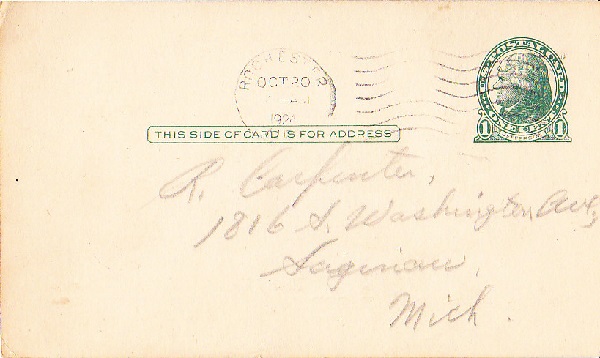 ROCHESTER
OCT 20
U.S. POSTAL CARD
1 ONE CENT 1
THIS SIDE OF CARD IS FOR ADDRESS
R. Carpenter,
1816 S. Washington Ave,
Saginaw,
Mich.